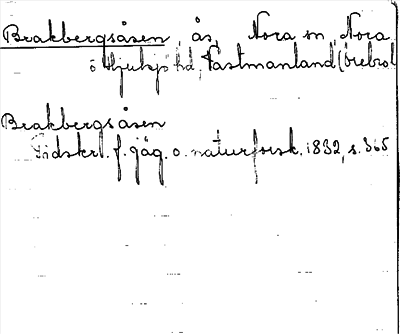 Brakbergsåsen, ås, Nora sn, Nora
o Hjulsjö hd, Västmanland (Örebro l
Brakbergsåsen
Tidskr. f. jäg. o. naturforsk. 1832, s. 365